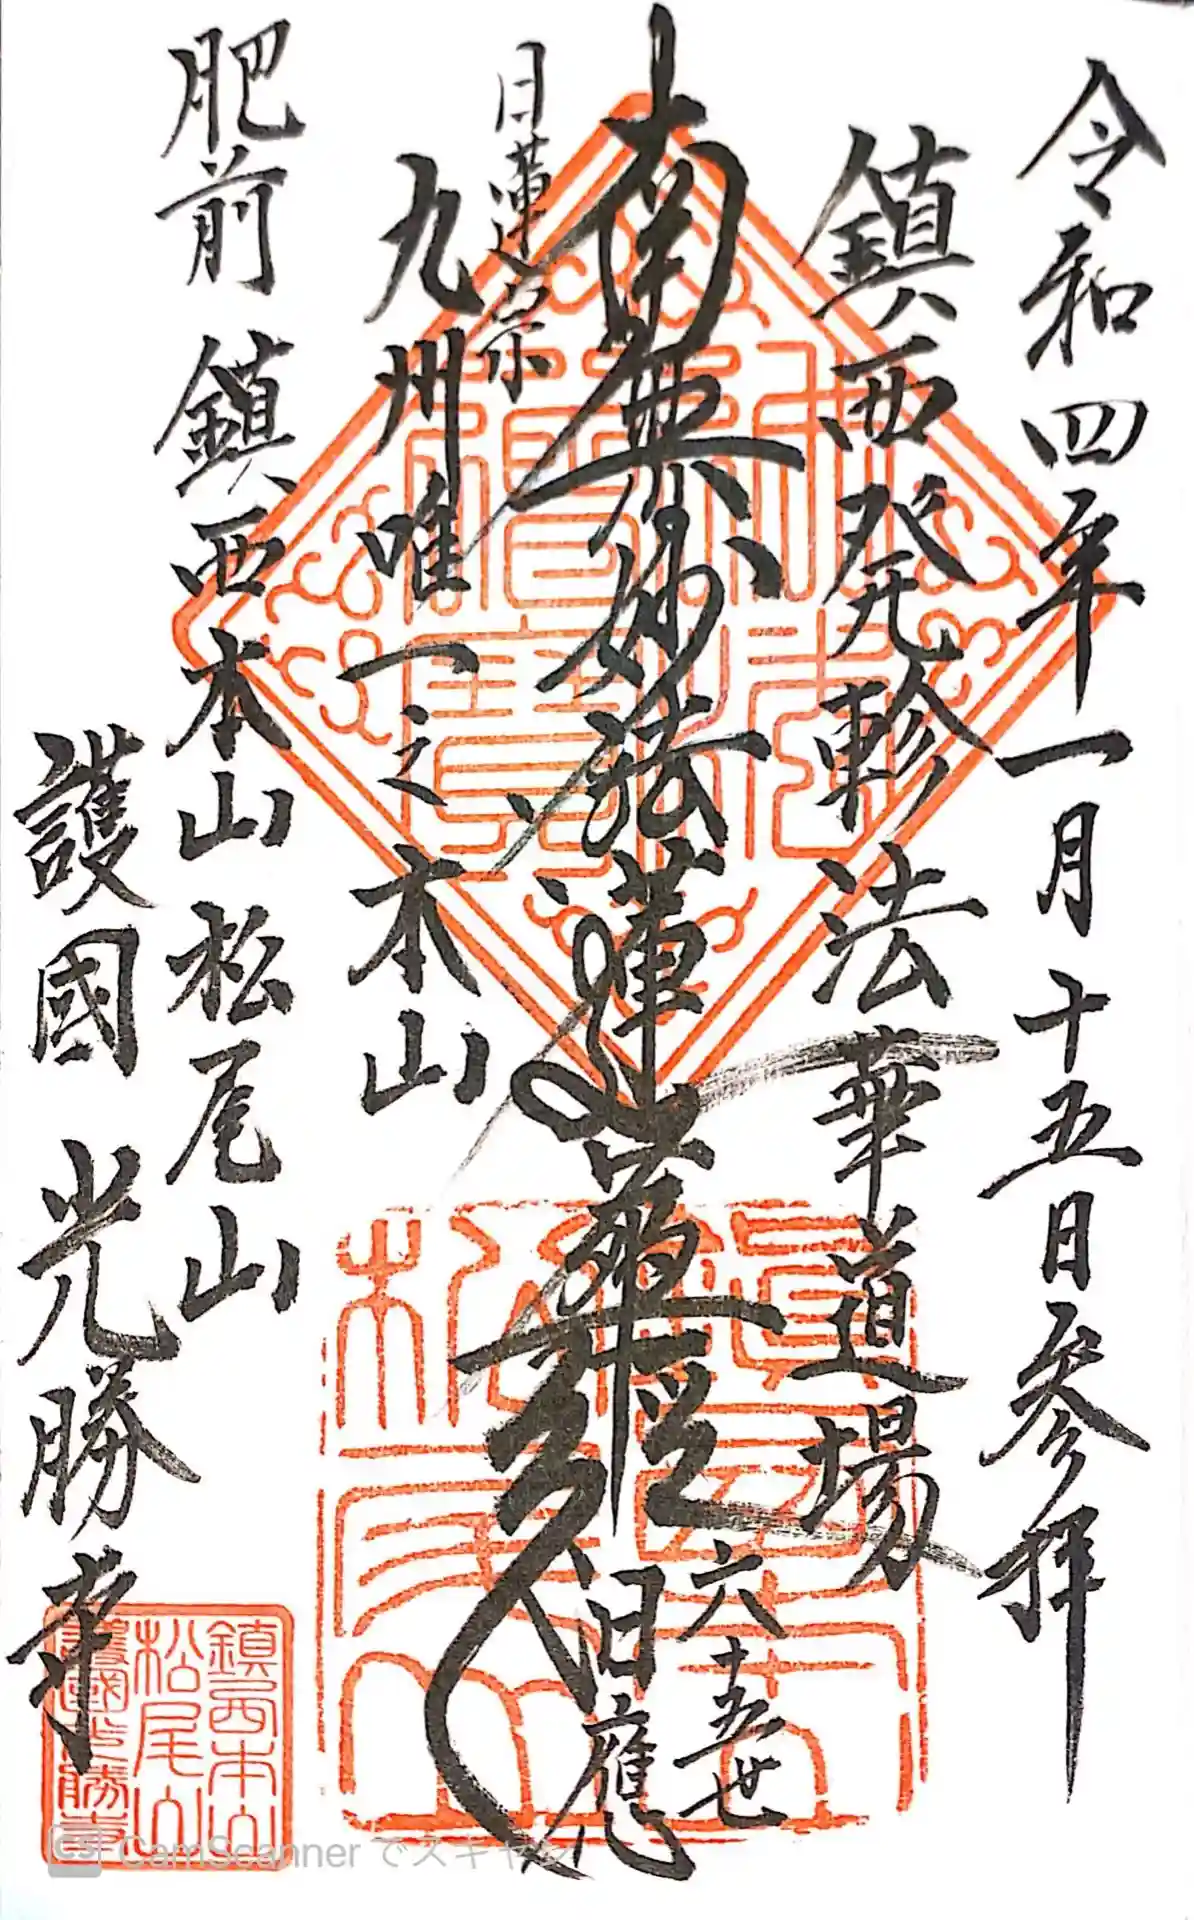 令和四年一月十五日参拝
鎮西発軫法華道場
南無妙法蓮華経
六十五世
日應
日蓮宗
九州唯一之本山
肥前 鎮西本山 松尾山
護國 光勝寺
鎮西本山
松尾山
護國光勝寺
CS CamScanner でスキャン